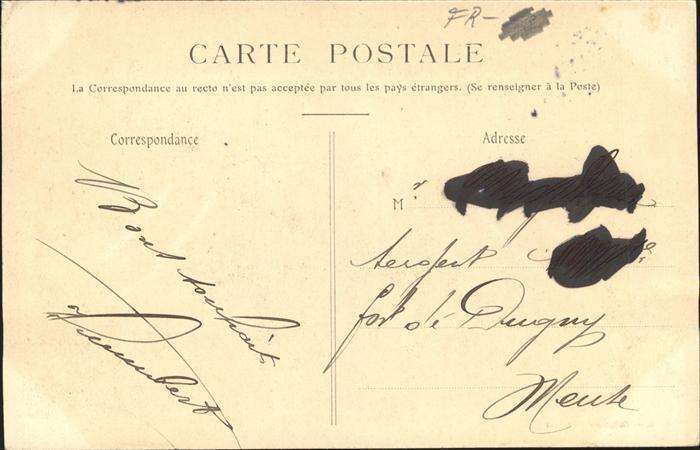 FR-
CARTE POSTALE
La Correspondance au recto n'est pas acceptée par tous les pays étrangers. (Se renseigner à la Poste)
Correspondance
Bons souhaits
Adresse
M r
sergent
fort de Dugny
Meuse